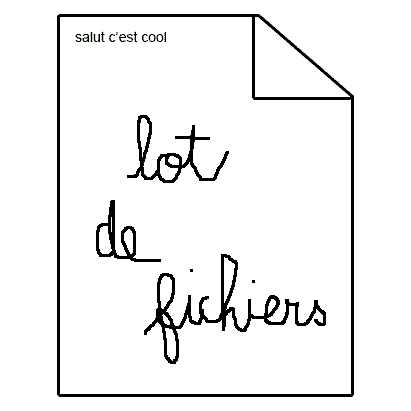 salut c'est cool
lot
de
fichiers